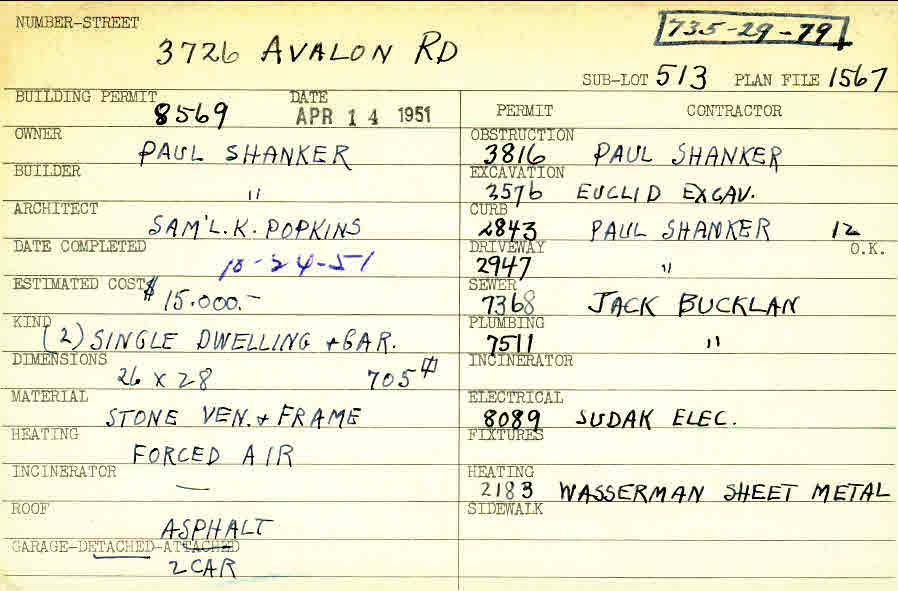 NUMBER-STREET
735-29-79
3726 AVALON RD
SUB-LOT 513 PLAN FILE 1567
BUILDING PERMIT 8569 DATE APR 14 1951
OWNER PAUL SHANKER
BUILDER "
ARCHITECT SAM'L. K. POPKINS
DATE COMPLETED 10-24-51
ESTIMATED COST $15.000.-
KIND (2) SINGLE DWELLING + GAR.
DIMENSIONS 26 X 28 705
MATERIAL STONE VEN. + FRAME
HEATING FORCED AIR
INCINERATOR —
ROOF ASPHALT
GARAGE-DETACHED-ATTACHED
2 CAR
PERMIT CONTRACTOR
OBSTRUCTION 3816 PAUL SHANKER
EXCAVATION 3576 EUCLID EXCAV.
CURB 2843 PAUL SHANKER 12
O.K.
DRIVEWAY 2947 "
SEWER 7368 JACK BUCKLAN
PLUMBING 7511 "
INCINERATOR
ELECTRICAL 8089 SUDAK ELEC.
FIXTURES
HEATING 2183 WASSERMAN SHEET METAL
SIDEWALK